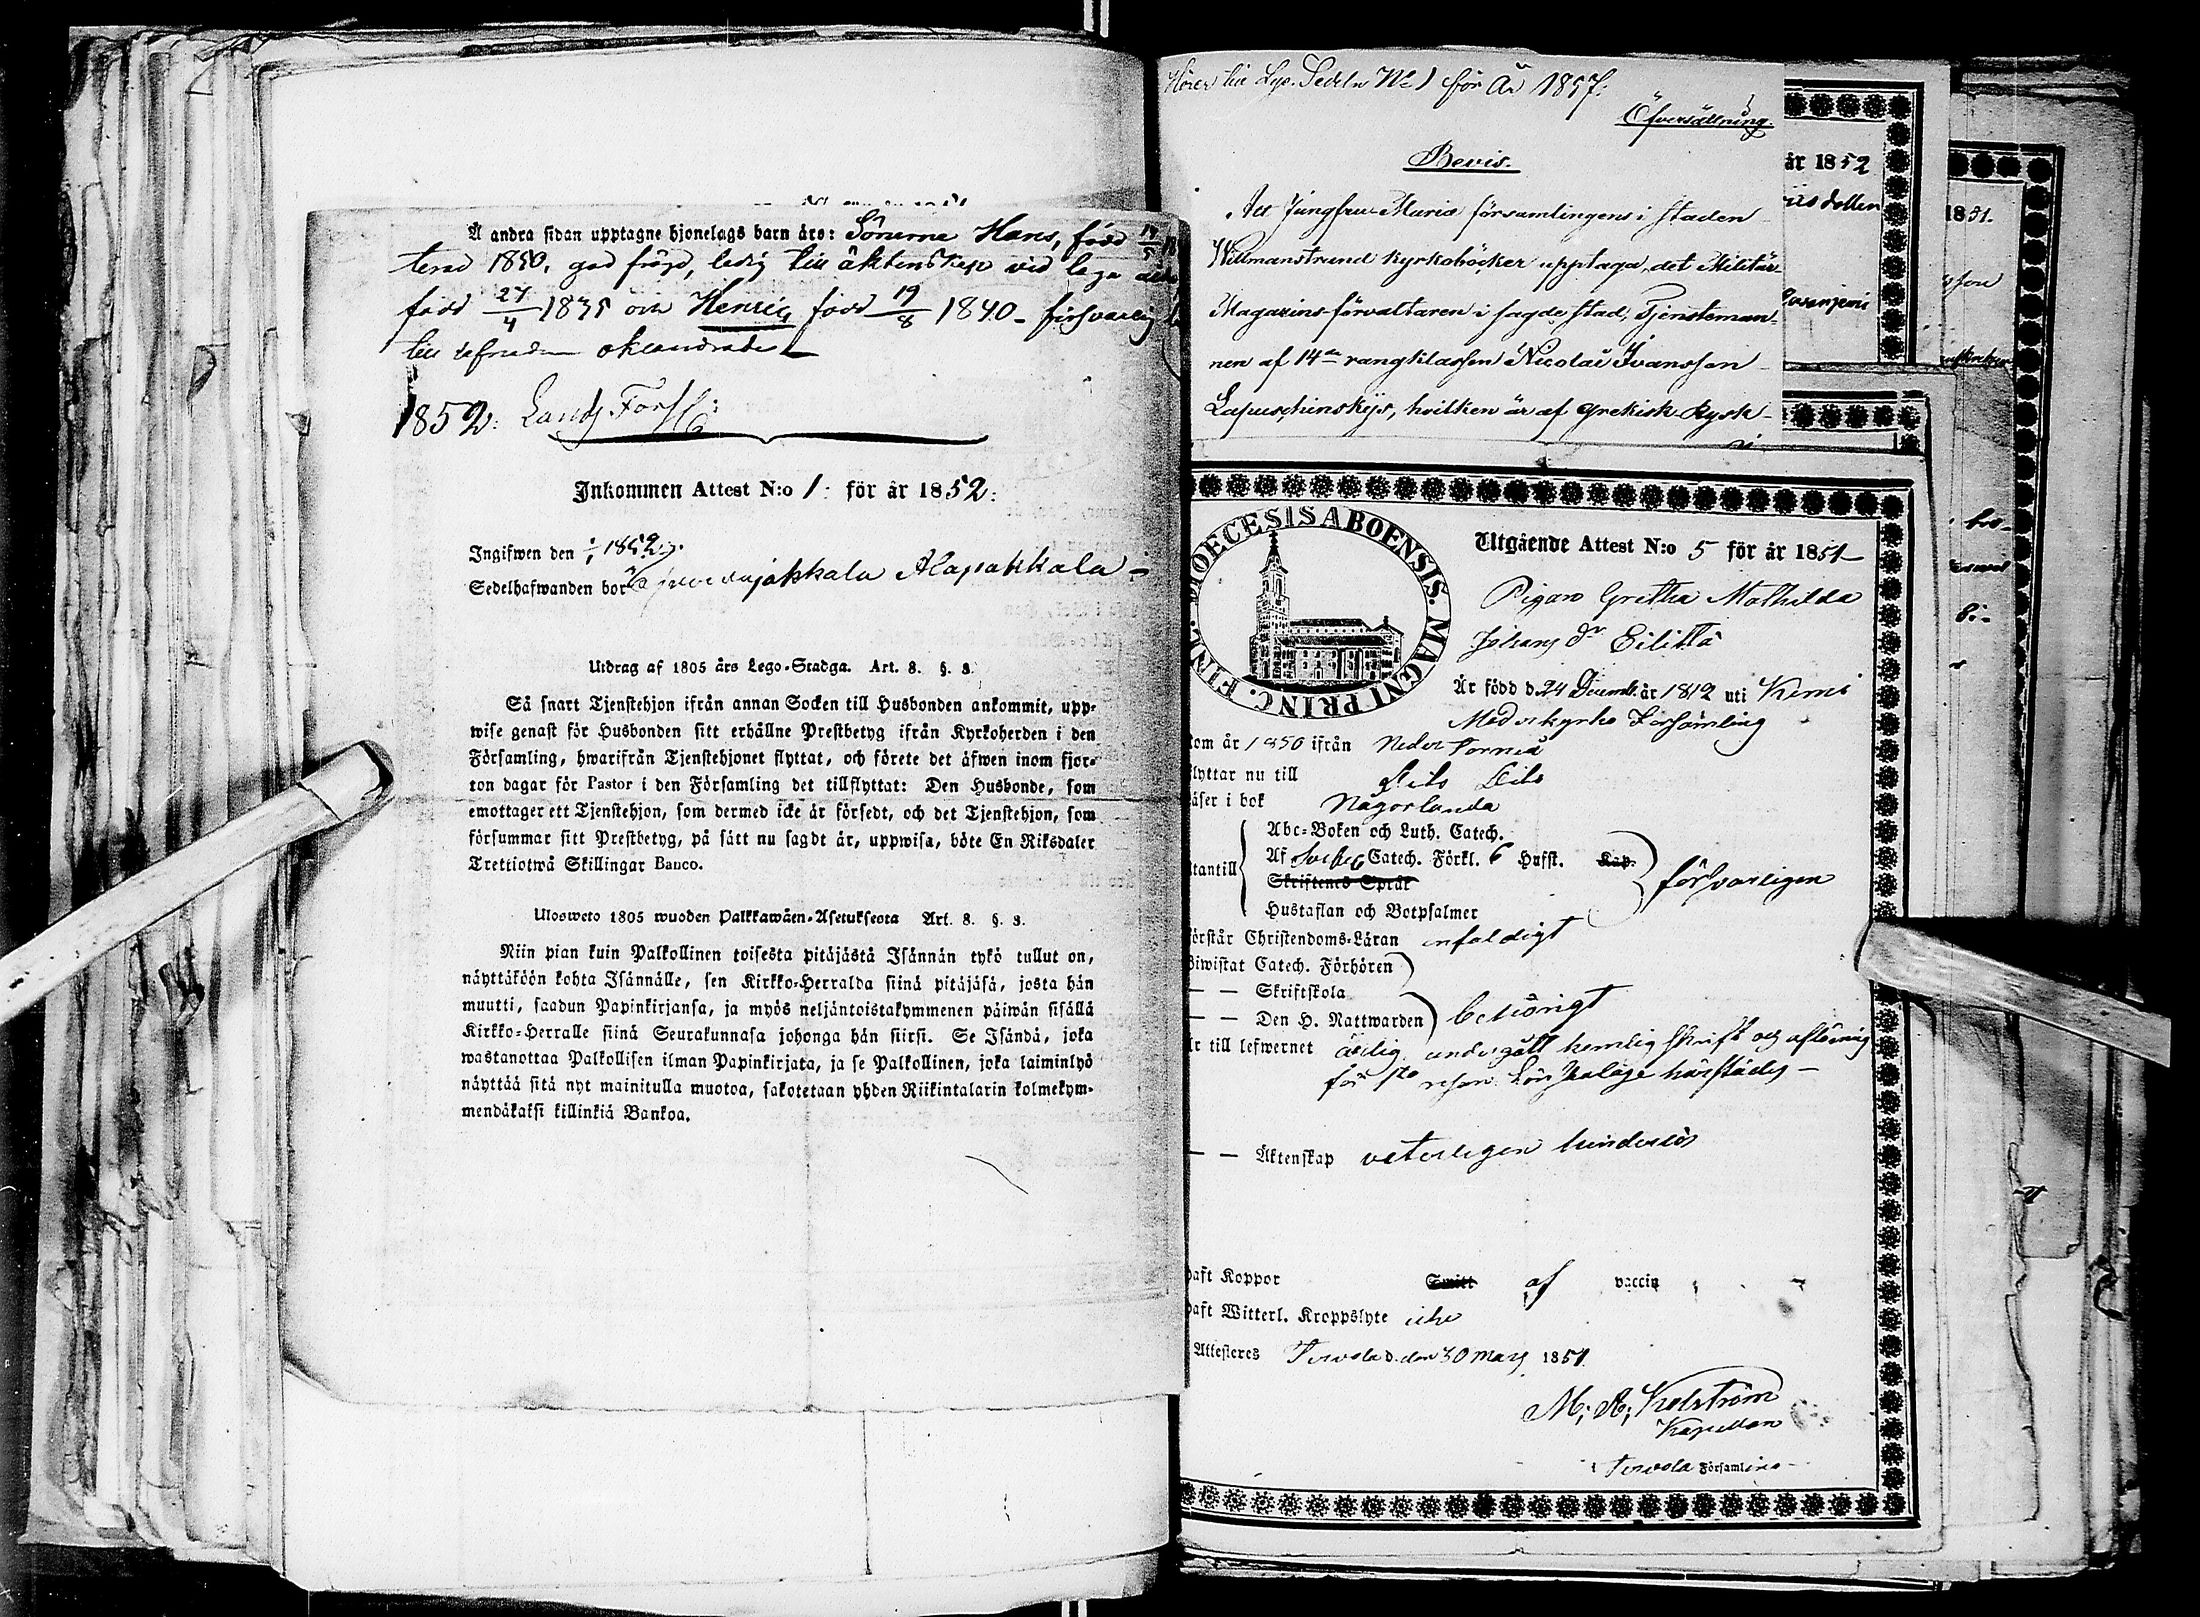 Å andra sidan upptagne hjonelags barn äro: Sönerne Hans, född 14/5 18
terad 1850, god fräjd, ledig till äktenskap vid laga
född 27/4 1835 och Henric, född 19/8 1840 - försvarlig
till lefnaden oklandrade
1852:
Inkommen Attest N:o 1: för år 1852:
Ingifwen den 1/1 1852.
Sedelhafwanden bor Alapakkala
Utdrag af 1805 års Lego-Stadga. Art. 8. §. 3.
Så snart Tjenstehjon ifrån annan Socken till Husbonden ankommit, upp-
wise genast för Husbonden sitt erhållne Prestbetyg ifrån Kyrkoherden i den
Församling, hwarifrån Tjenstehjonet flyttat, och förete det äfwen inom fjor-
ton dagar för Pastor i den Församling det tillflyttat: Den Husbonde, som
emottager ett Tjenstehjon, som dermed icke är försedt, och det Tjenstehjon, som
försummar sitt Prestbetyg, på sätt nu sagdt är, uppwisa, böte En Riksdaler
Trettiotwå Skillingar Banco.
Ulosweto 1805 wuoden Palkkawäen-Asetuksesta Art. 8. §. 3.
Niin pian kuin Palkollinen toisesta pitäjästä Isännän tykö tullut on,
näyttäköön kohta Isännälle, sen Kirkko-Herralda siinä pitäjäsä, josta hän
muutti, saadun Papinkirjansa, ja myös neljäntoistakymmenen päiwän sisällä
Kirkko-Herralle siinä Seurakunnasa johonga hän siirsi. Se Isändä, joka
wastanottaa Palkollisen ilman Papinkirjata, ja se Palkollinen, joka laiminlyö
näyttää sitä nyt mainitulla muotoa, sakotetaan yhden Riikintalarin kolmekym-
mendäkaksi killinkiä Bankoa.
Hörer till Lys. Sedeln No 1 för År 1857:
Öfversättning.
Bevis.
Att Jungfru Mariæ församlingens i staden
Willmanstrand kyrkoböcker upptaga, det Militär
Magazins-förvaltaren i sagde stad, Tjensteman-
nen af 14de rangklassen Nicolai Ivansson
Lapuschinskijs, hvilken är af Grekisk-Rysk-
år 1852
1851.
DIOECESIS ABOENSIS. MAGNI PRINC. FINL.
Utgående Attest N:o 5 för år 1851
Pigan Gretha Mathilda
Johans dr Eilittä
Är född d. 24 Decemb. år 1812 uti Kemi
Moderkyrko Församling
kom år 1850 ifrån Neder Torneå
flyttar nu till
läser i bok Någorlunda
Abc-Boken och Luth. Catech.
utantill Af Svebe. Catech. Förkl. 6 Hufst. Kap. försvarligen
Skriftenes Språk
Hustaflan och Botpsalmer
förstår Christendoms-Läran enfaldigt
Biwistat Catech. Förhören
— — Skriftskola
— — Den H. Nattwarden behörigt
är till lefwernet ärlig, undergått hemlig skrift och aflösning
för 1sta resan härstädes —
— — Äktenskap veterligen hinderlös
haft Koppor Smitt af vaccin
haft Witterl. Kroppslyte icke
Attesteres Tervola d. den 30 Mars 1851.
Kapellan
i Tervola Församling